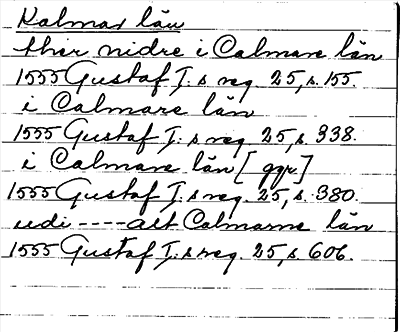 Kalmar län
ther nidre i Calmare län
1555 Gustaf I:s reg. 25, s. 155.
i Calmare län
1555 Gustaf I:s reg. 25, s. 338.
i Calmare län [ggr]
1555 Gustaf I:s reg. 25, s. 380.
udi ---- alt Calmarne län
1555 Gustaf I:s reg. 25, s. 606.